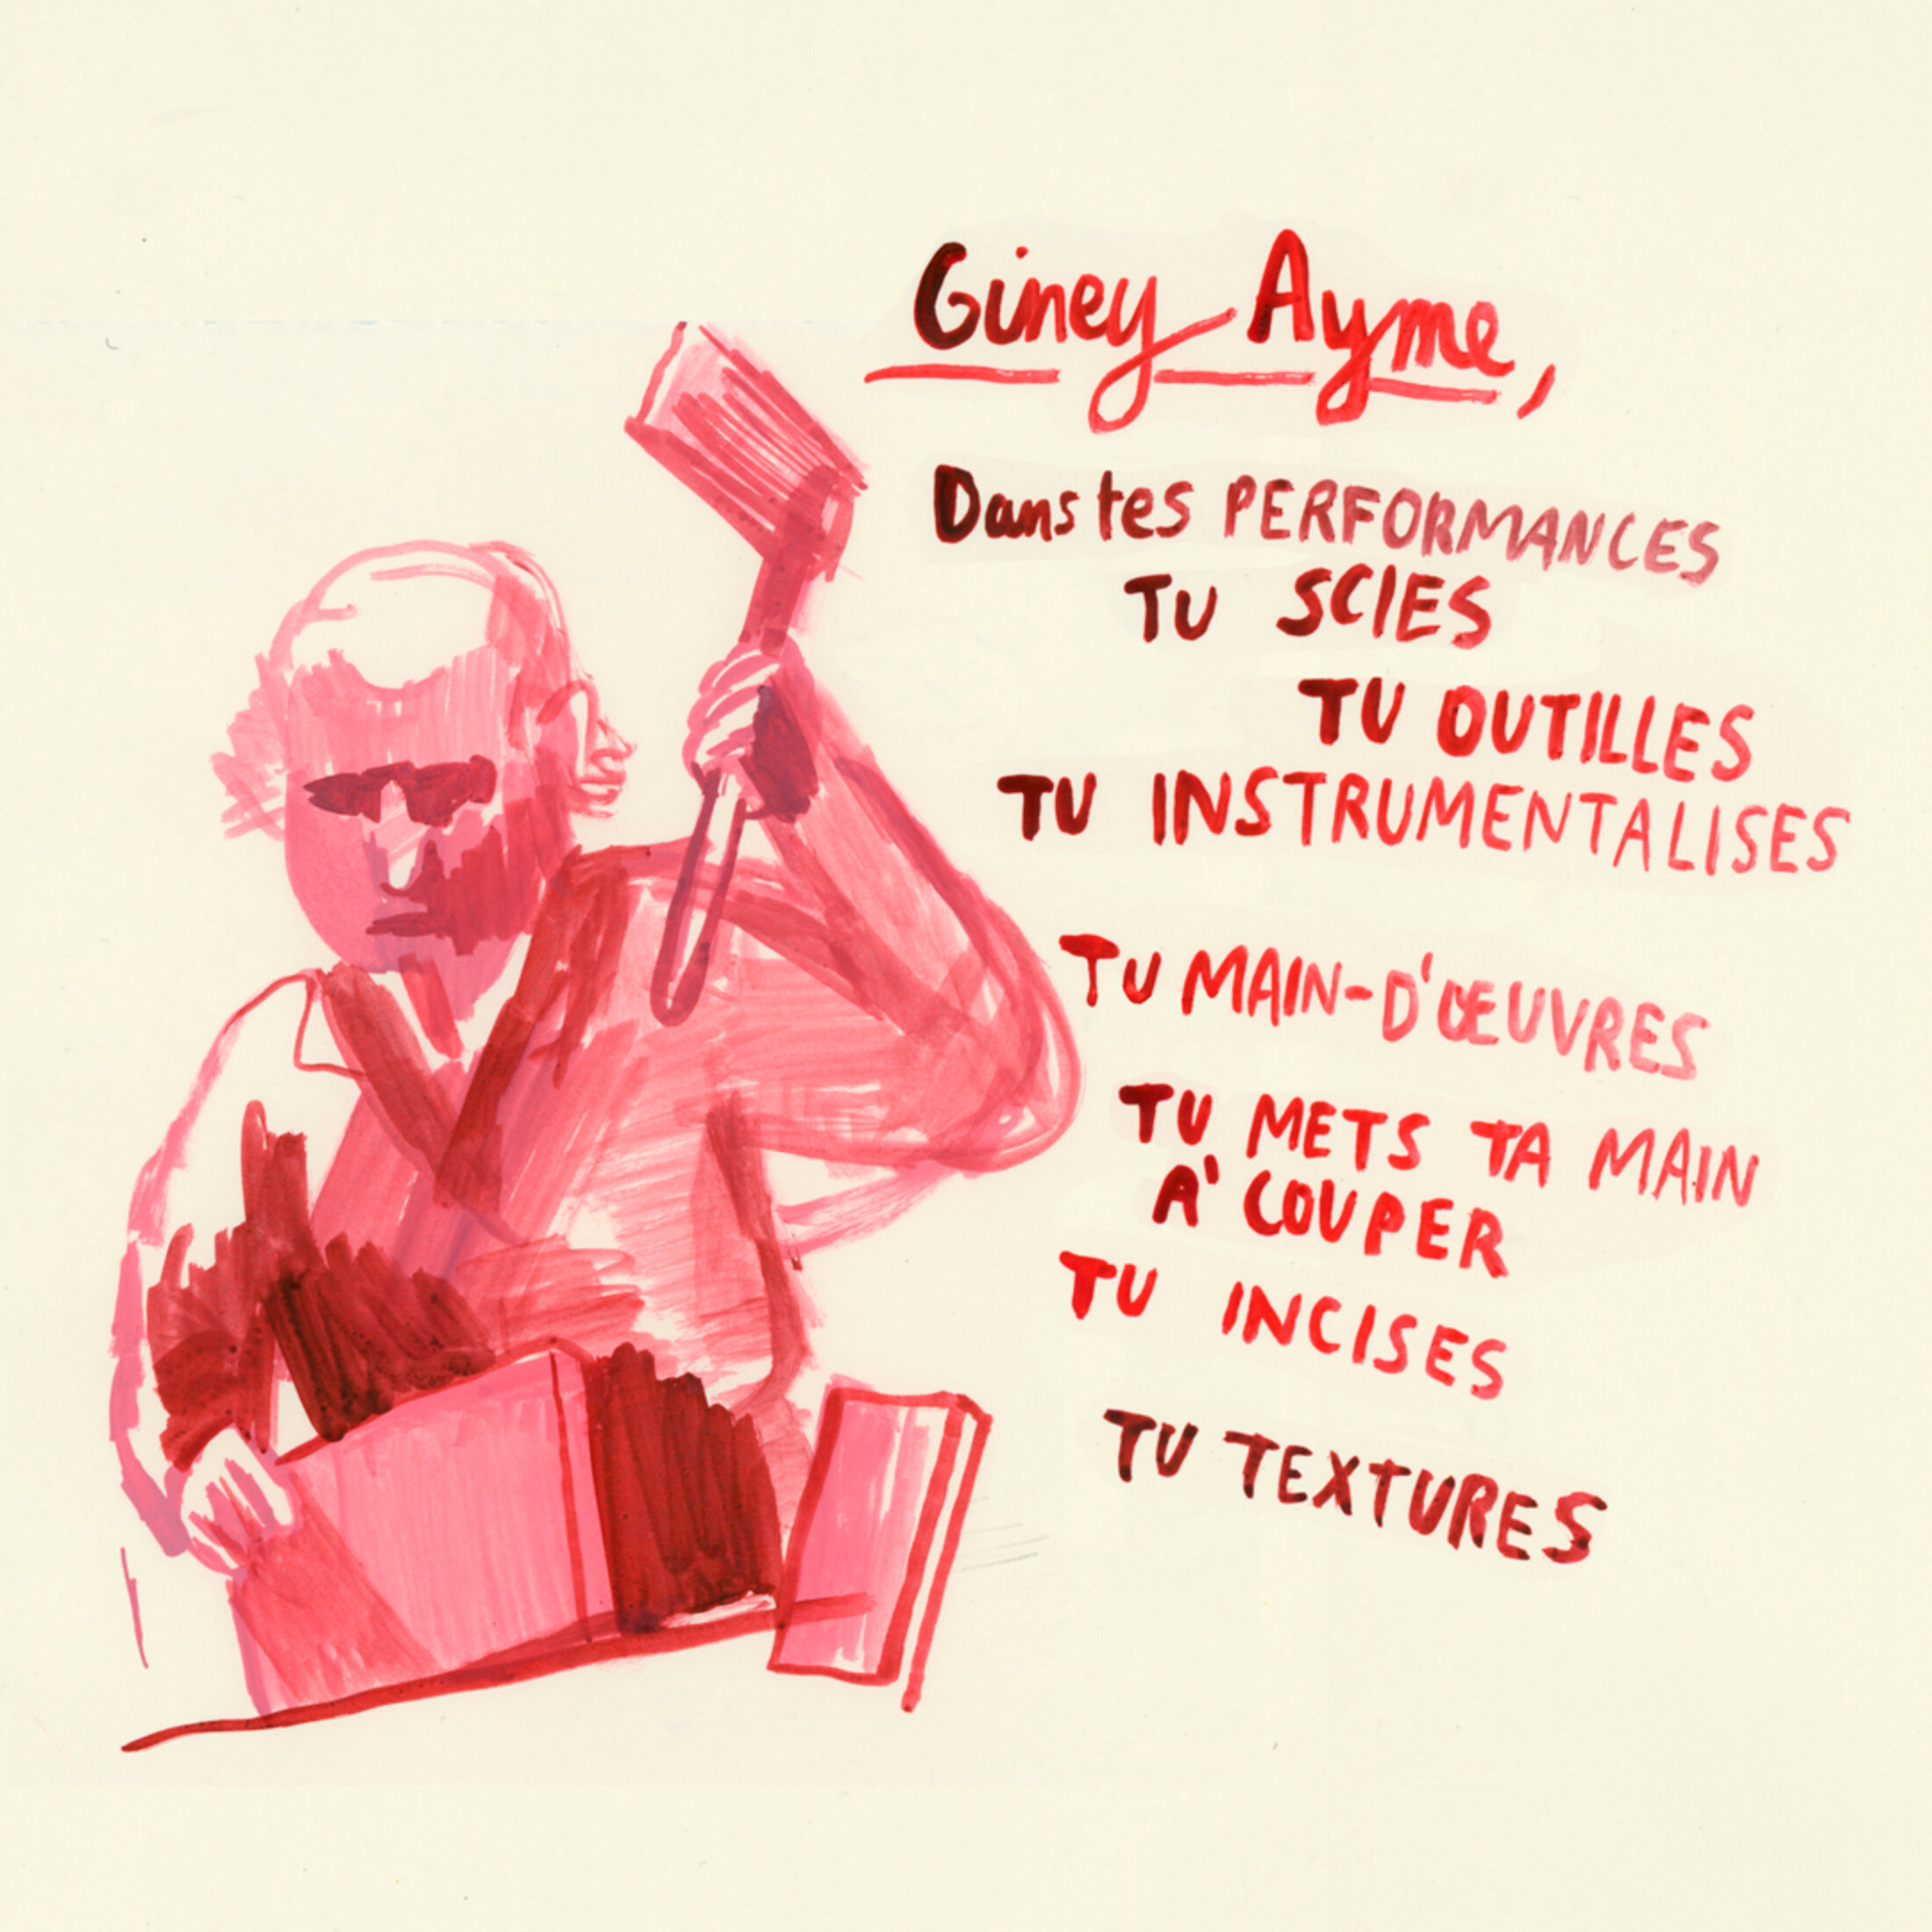 Giney Ayme,
Dans tes PERFORMANCES
TU SCIES
TU OUTILLES
TU INSTRUMENTALISES
TU MAIN-D'ŒUVRES
TU METS TA MAIN
A' COUPER
TU INCISES
TU TEXTURES